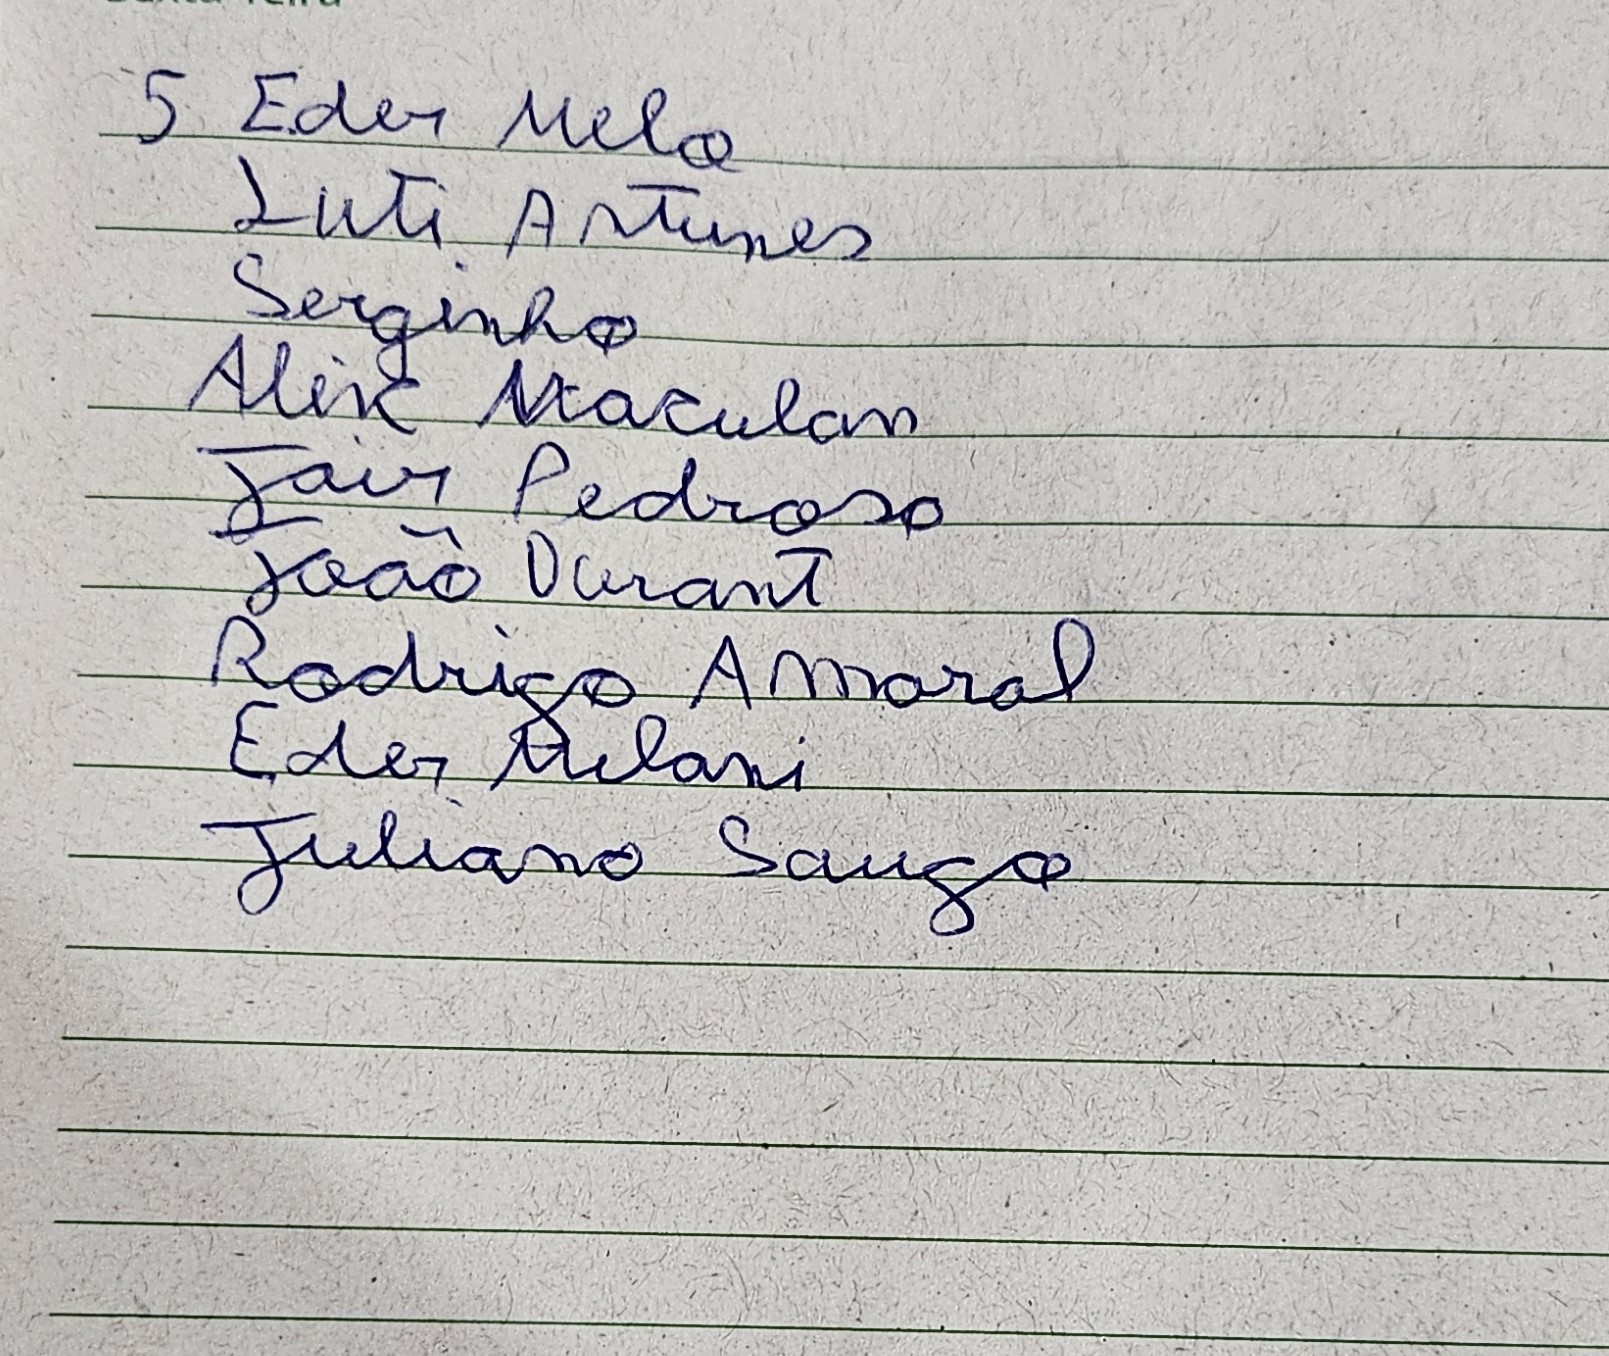 5 Eder Melo
Luti Antunes
Serginho
Alex Maculan
Jair Pedroso
João Durant
Rodrigo Amaral
Eder Milani
Juliano Saugo